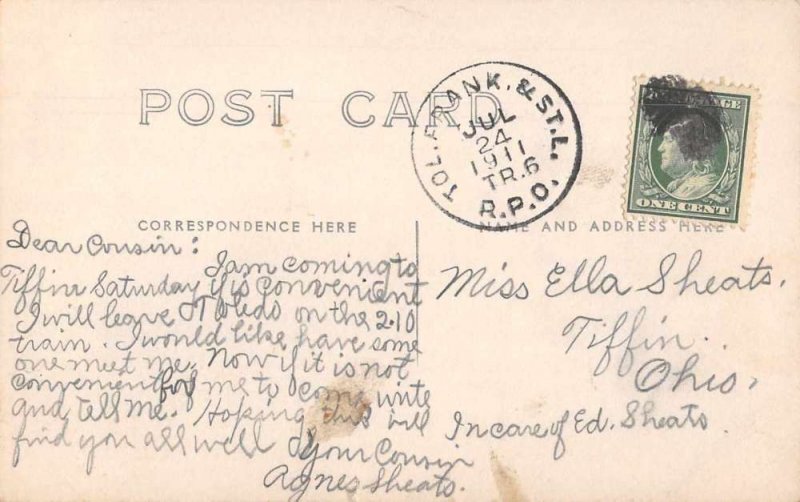 POST CARD
TOL. FRANK. & ST. L.
JUL
24
1911
TR. 6
R.P.O.
ONE CENT
CORRESPONDENCE HERE
NAME AND ADDRESS HERE
Dear Cousin:
I am coming to
Tiffin Saturday if is convenient
I will leave Toledo on the 2.10
train. I would like have some
one meet me. Now if it is not
convenient for me to come write
and tell me. Hoping this will
find you all well
Your Cousin
Agnes Sheats.
Miss Ella Sheats.
Tiffin.
Ohio.
In care of Ed. Sheats.